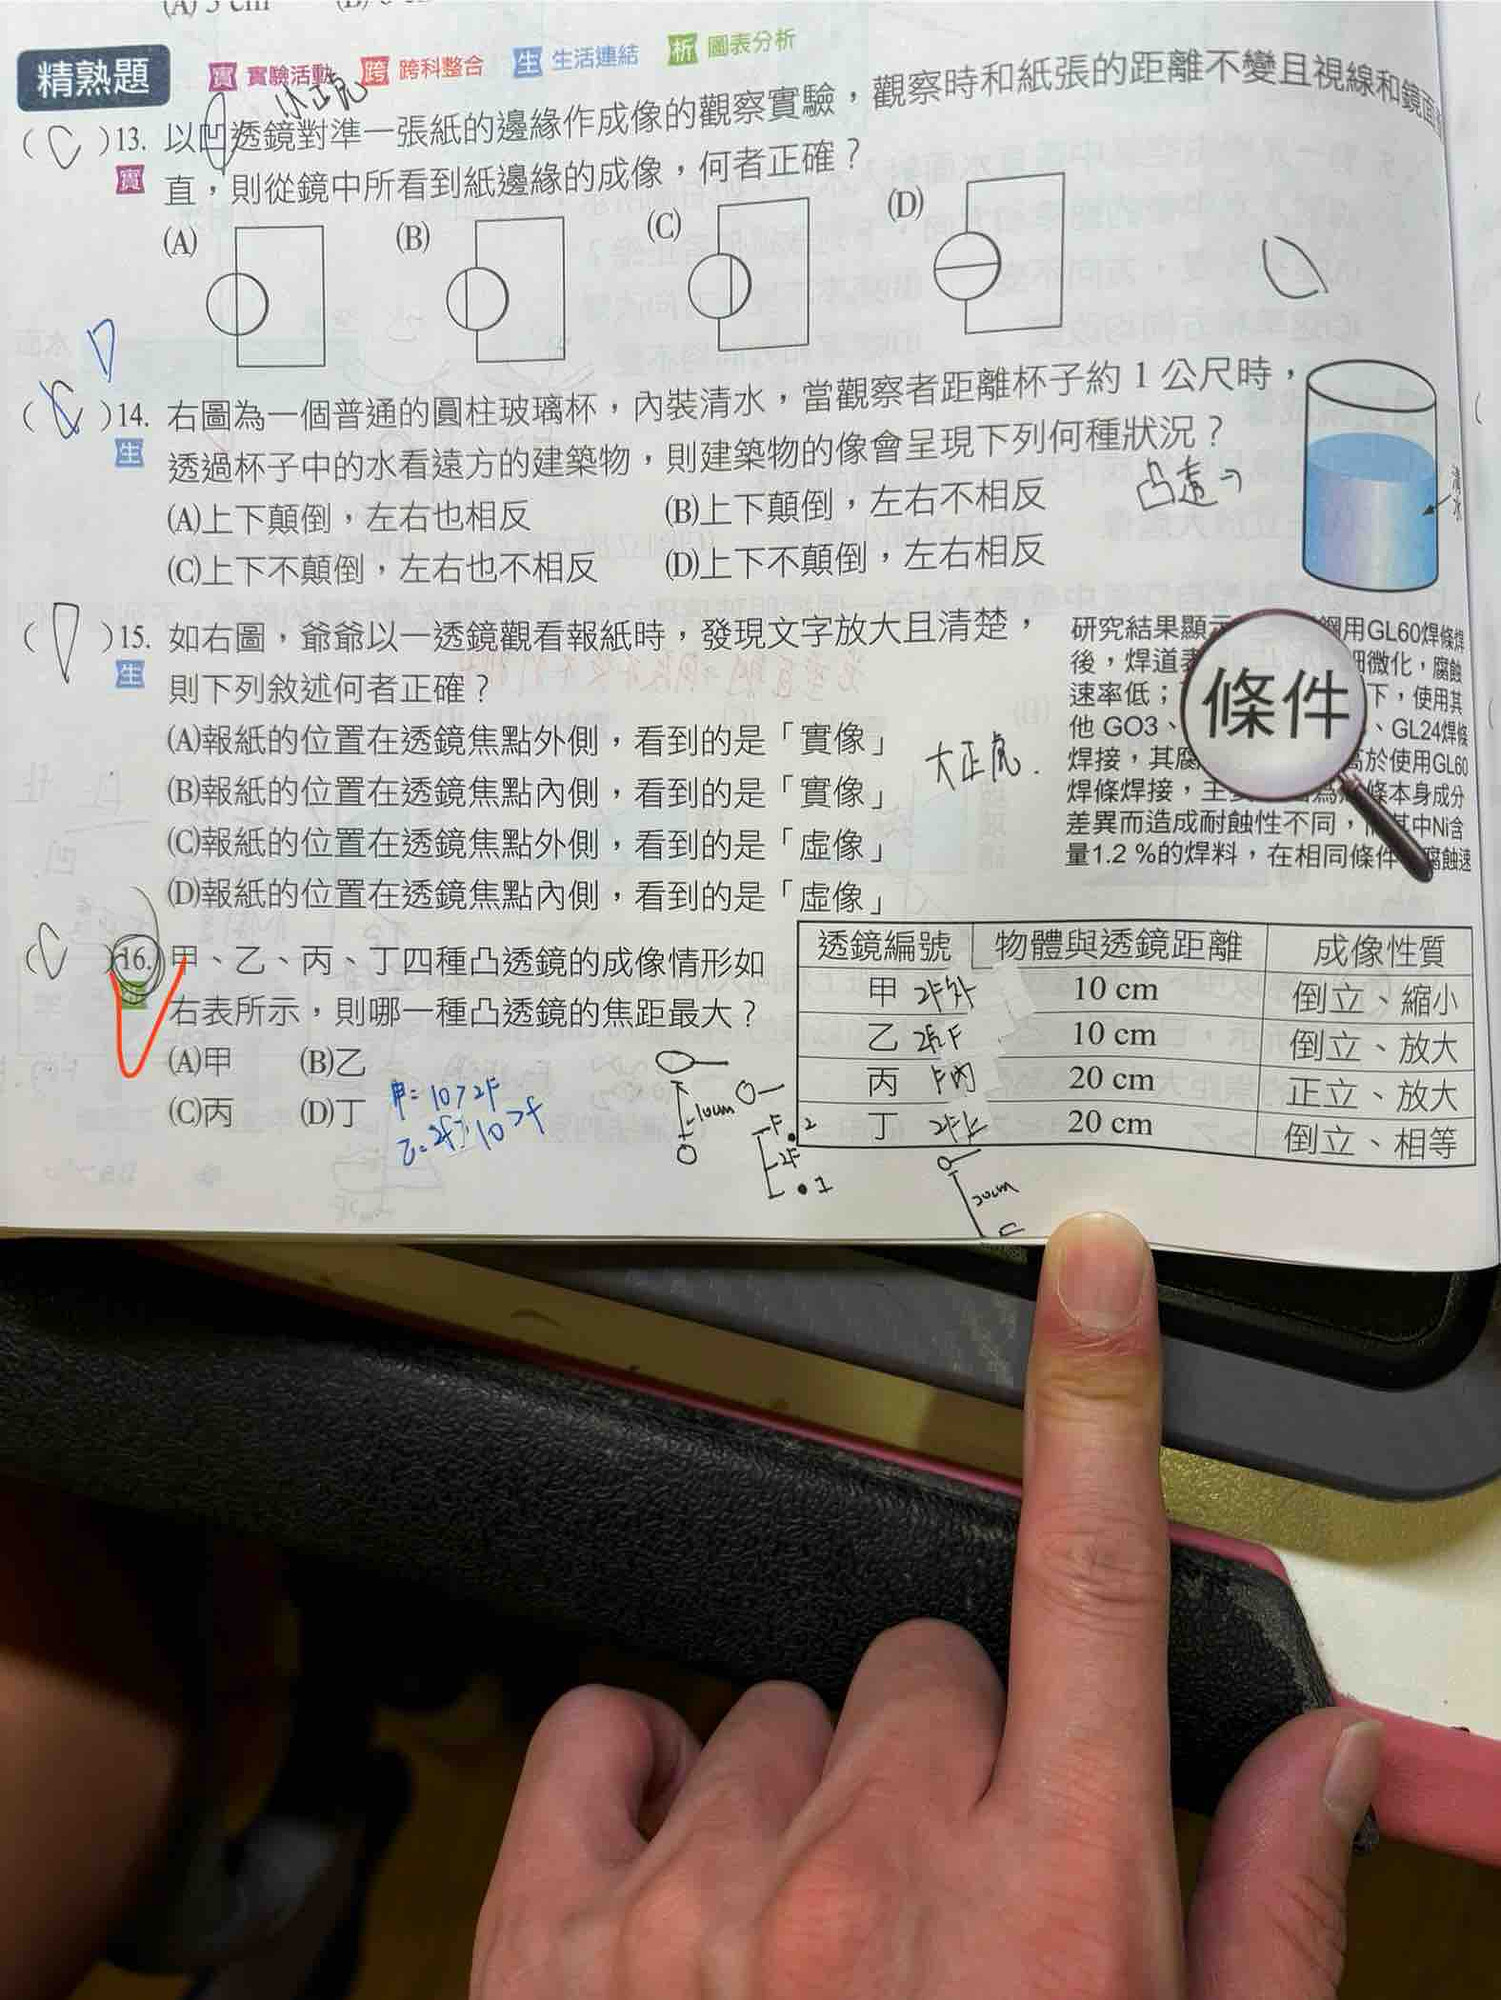 精熟題 實 實驗活動 跨 跨科整合 生 生活連結 析 圖表分析
小正虛
(C)13. 以凹透鏡對準一張紙的邊緣作成像的觀察實驗，觀察時和紙張的距離不變且視線和鏡面
實 直，則從鏡中所看到紙邊緣的成像，何者正確？
(A) (B) (C) (D)
D
( )14. 右圖為一個普通的圓柱玻璃杯，內裝清水，當觀察者距離杯子約 1 公尺時，
生 透過杯子中的水看遠方的建築物，則建築物的像會呈現下列何種狀況？
(A)上下顛倒，左右也相反 (B)上下顛倒，左右不相反
(C)上下不顛倒，左右也不相反 (D)上下不顛倒，左右相反
清水
(D)15. 如右圖，爺爺以一透鏡觀看報紙時，發現文字放大且清楚，
生 則下列敘述何者正確？
(A)報紙的位置在透鏡焦點外側，看到的是「實像」
(B)報紙的位置在透鏡焦點內側，看到的是「實像」
(C)報紙的位置在透鏡焦點外側，看到的是「虛像」
(D)報紙的位置在透鏡焦點內側，看到的是「虛像」
大正虛.
研究結果顯示 鋼用GL60焊條焊
後，焊道表 細微化，腐蝕
速率低； 下，使用其
他 GO3、 、GL24焊條
焊接，其腐 高於使用GL60
焊條焊接，主 為 條本身成分
差異而造成耐蝕性不同， 其中Ni含
量1.2 %的焊料，在相同條件 腐蝕速
條件
(C)16. 甲、乙、丙、丁四種凸透鏡的成像情形如
右表所示，則哪一種凸透鏡的焦距最大？
(A)甲 (B)乙
(C)丙 (D)丁
甲=10>2F
乙=2f>10>f
透鏡編號 物體與透鏡距離 成像性質
甲 2F外 10 cm 倒立、縮小
乙 10 cm 倒立、放大
丙 F內 20 cm 正立、放大
丁 2F上 20 cm 倒立、相等
10cm
F 2
2F
1
20cm